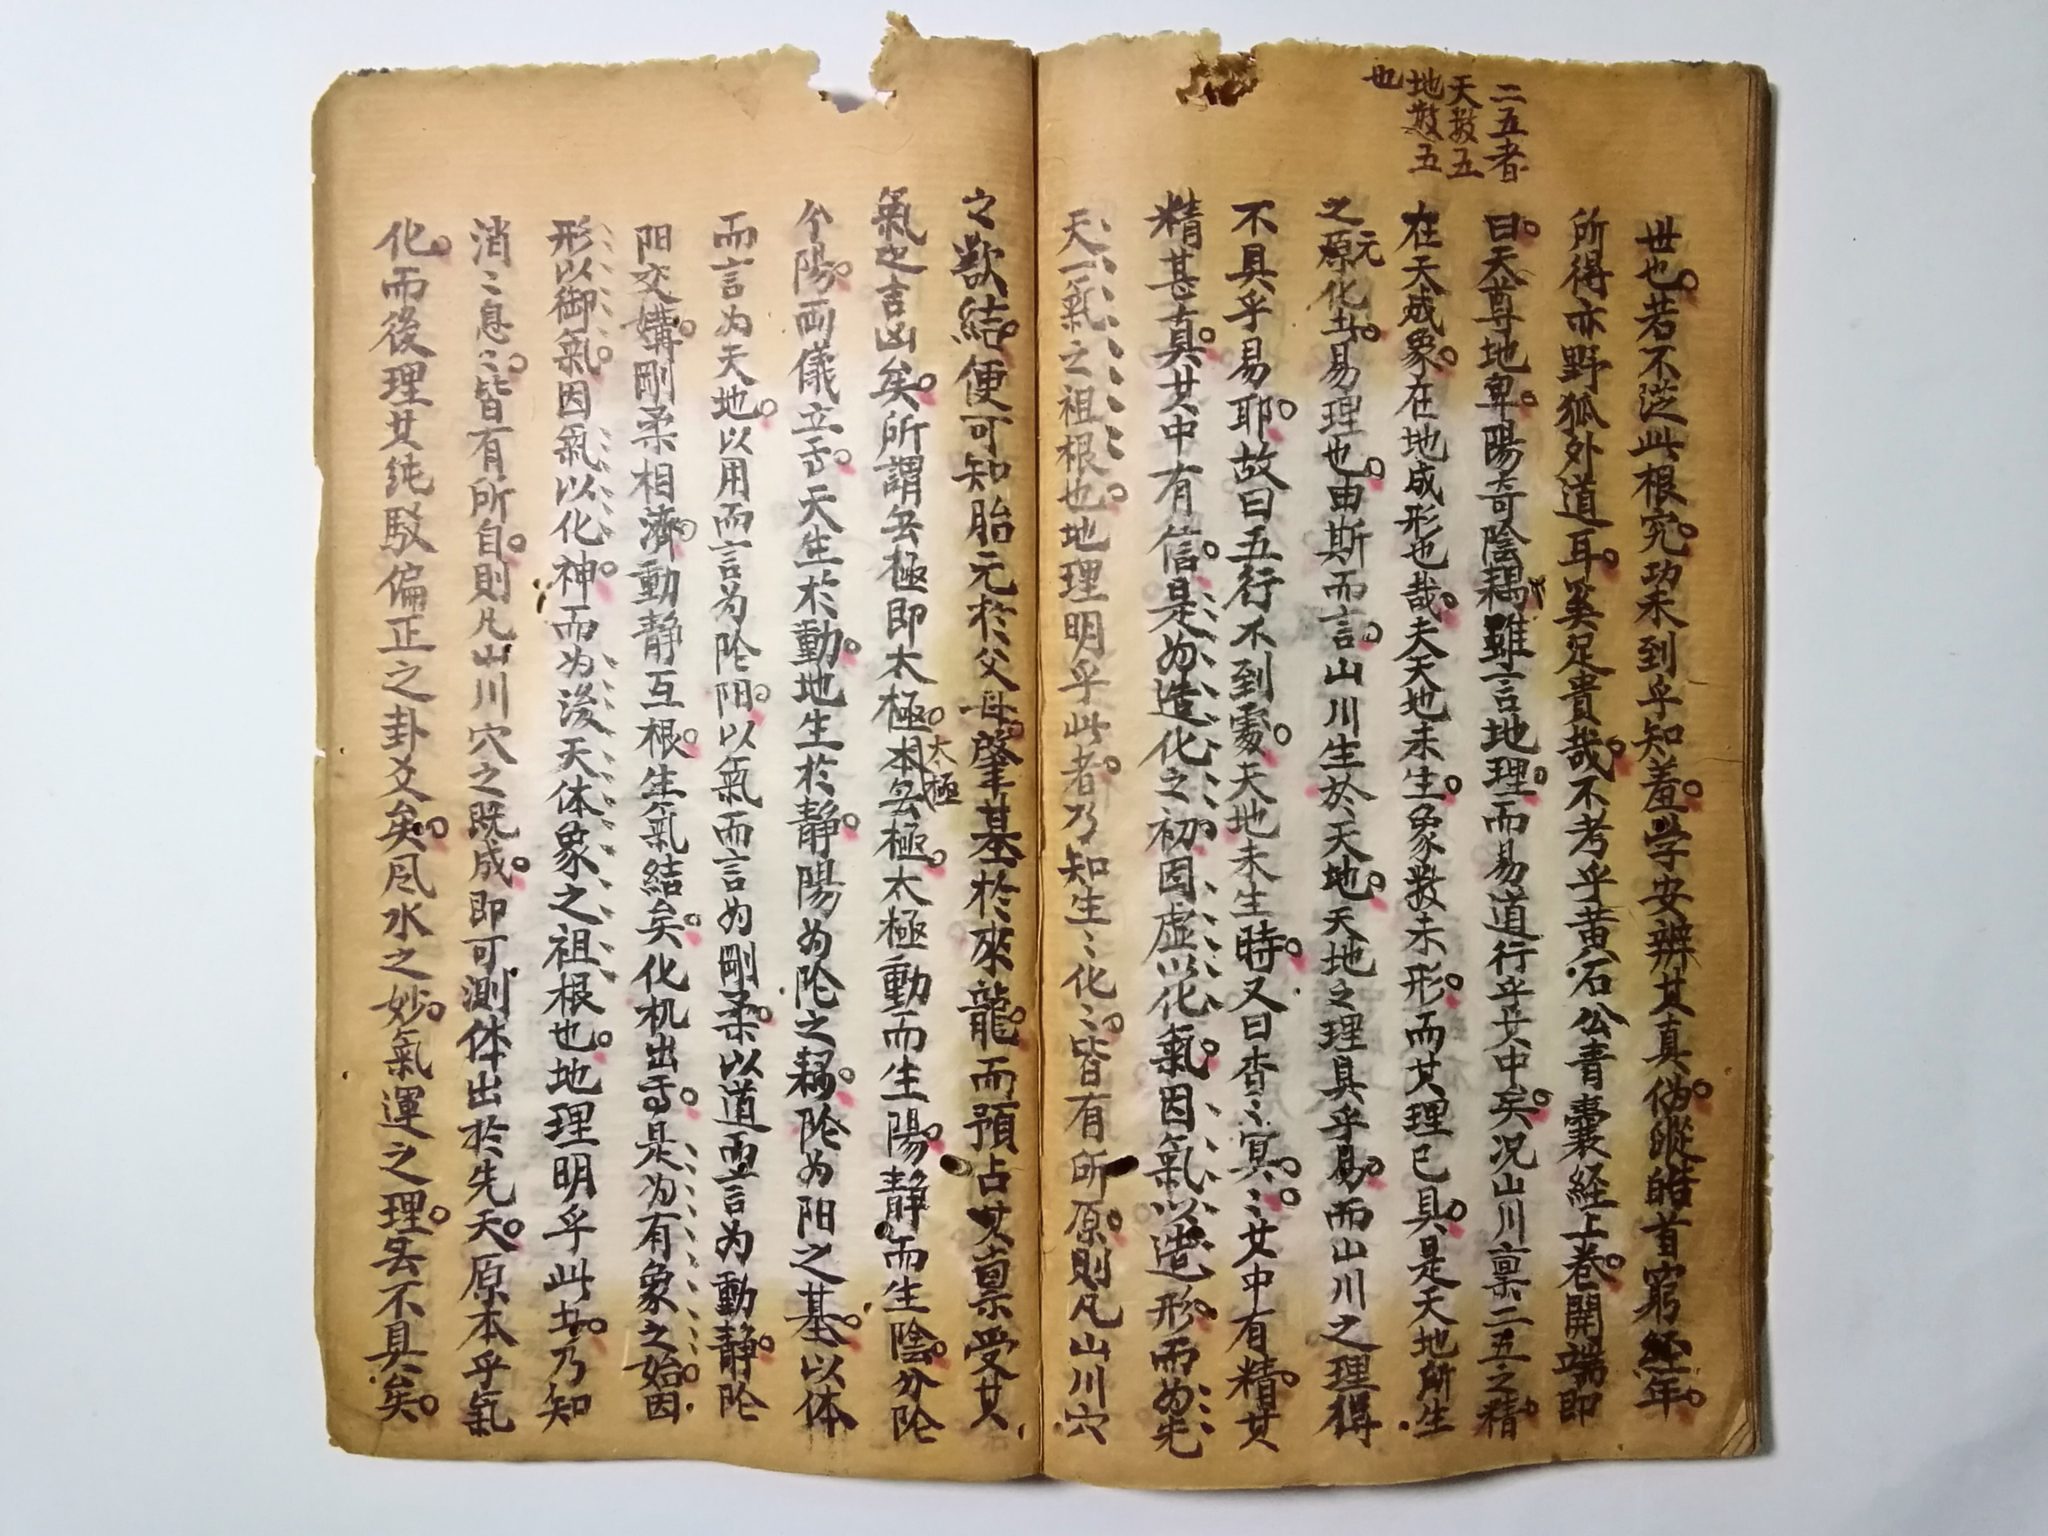 二五者
天数五
地数五
也
世也若不从此根究功未到乎知羞学安辨其真伪蹤皓首窮經年
所得亦野狐外道耳奚足貴哉不考乎黄石公青囊経上卷開端即
曰天尊地卑陽奇陰耦雖言地理而易道行乎其中矣况山川禀二五之精
在天成象在地成形也哉夫天地未生象数未形而其理已具是天地所生
之元原化生易理也由斯而言山川生於天地天地之理具乎易而山川之理得
不具乎易耶故曰五行不到處天地未生時又曰杳〻冥〻其中有精其
精甚真其中有信是为造化之初因虚以化氣因氣以造形而为先
天一氣之祖根也地理明乎此者乃知生〻化〻皆有所原則凡山川穴
之歛結便可知胎元於父母肇基於來龍而預占其禀受其
氣之吉凶矣所謂無極即太極太極本無極太極動而生陽靜而生陰分阴
分陽両儀立焉天生於動地生於静陽为阴之耦阴为阳之基以体
而言为天地以用而言为阴阳以氣而言为剛柔以道而言为動静阴
阳交媾剛柔相濟動静互根生氣結矣化机出焉是为有象之始因
形以御氣因氣以化神而为後天体象之祖根也地理明乎此者乃知
消〻息〻皆有所自則凡山川穴之既成即可測体出於先天原本乎氣
化而後理其纯駁偏正之卦爻矣风水之妙氣運之理無不具矣